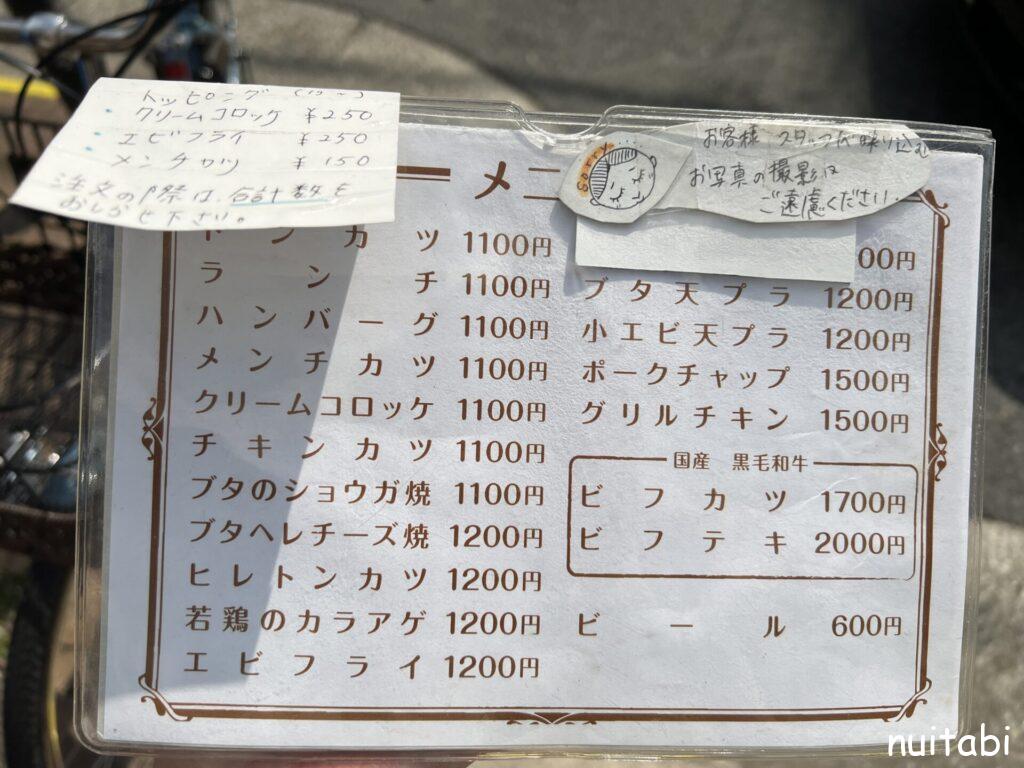 トッピング
クリームコロッケ ¥250
エビフライ ¥250
メンチカツ ¥150
注文の際は、合計数を
おしらせ下さい。
sorry
お客様 スタッフに映り込む
お写真の撮影は
ご遠慮ください。
メニ
トンカツ 1100円
ランチ 1100円
ハンバーグ 1100円
メンチカツ 1100円
クリームコロッケ 1100円
チキンカツ 1100円
ブタのショウガ焼 1100円
ブタヘレチーズ焼 1200円
ヒレトンカツ 1200円
若鶏のカラアゲ 1200円
エビフライ 1200円
00円
ブタ天プラ 1200円
小エビ天プラ 1200円
ポークチャップ 1500円
グリルチキン 1500円
国産 黒毛和牛
ビフカツ 1700円
ビフテキ 2000円
ビール 600円
nuitabi